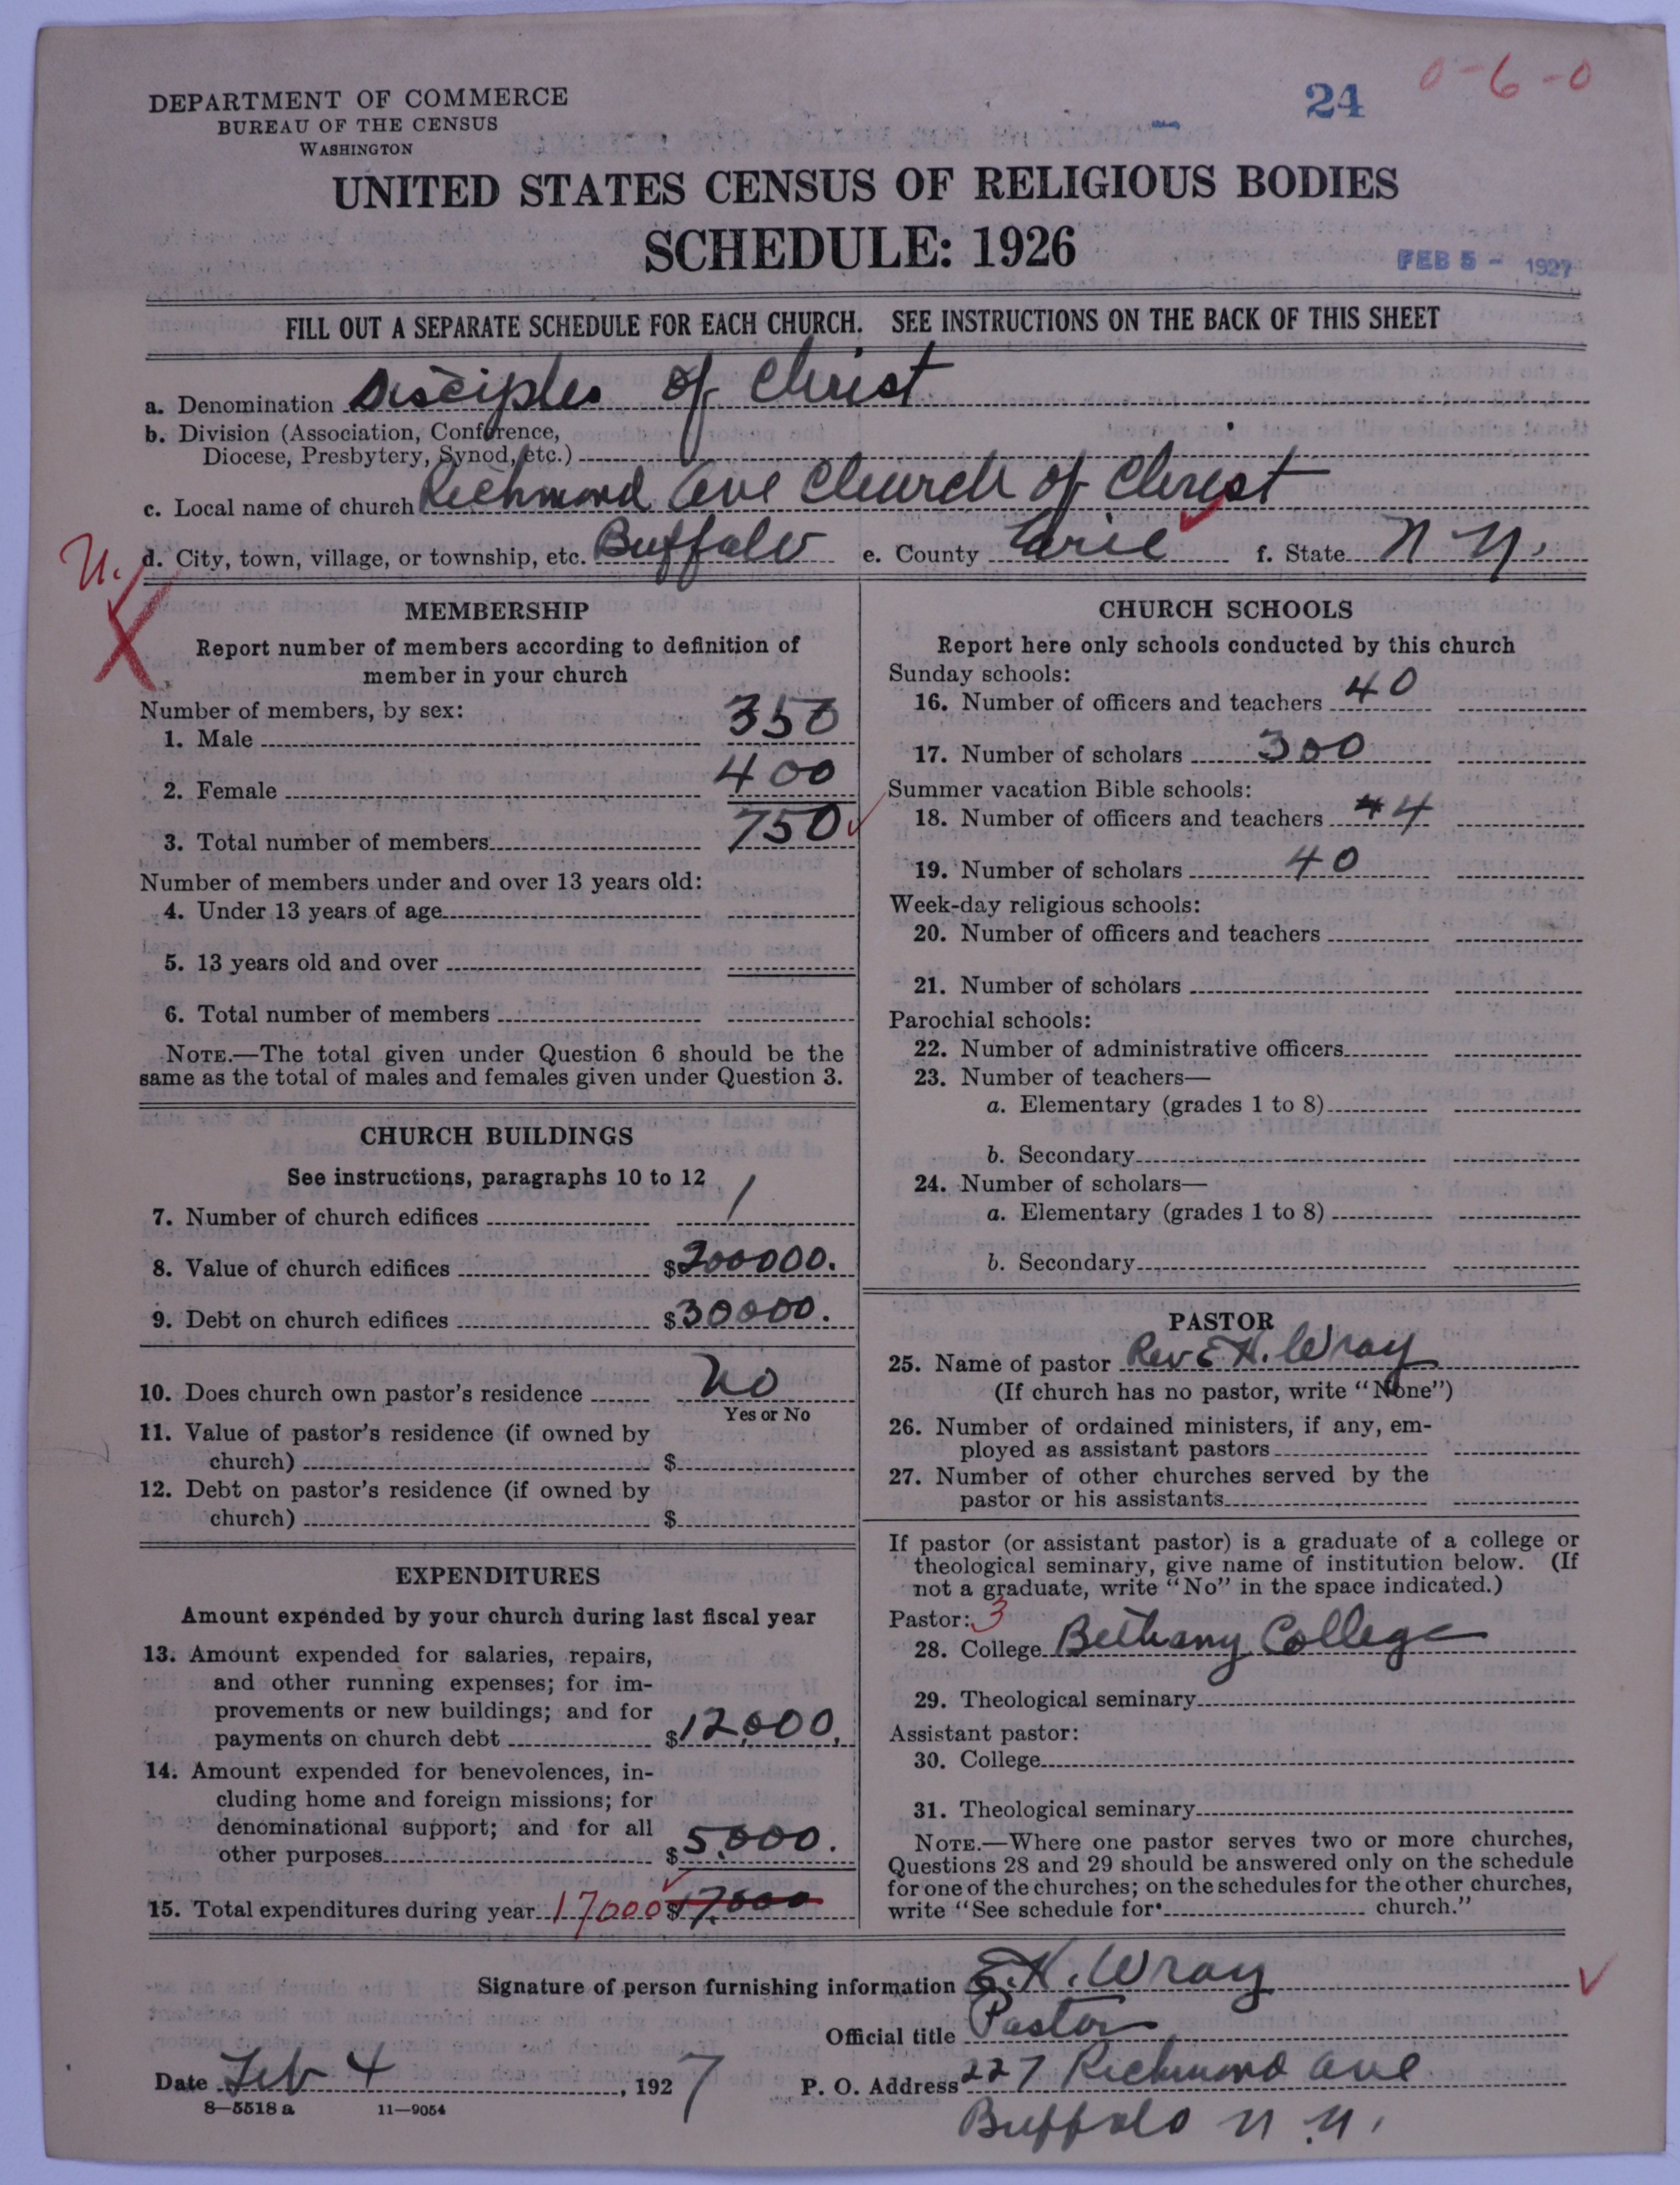 DEPARTMENT OF COMMERCE
BUREAU OF THE CENSUS
WASHINGTON
24
0-6-0
UNITED STATES CENSUS OF RELIGIOUS BODIES
SCHEDULE: 1926
FEB 5 - 1927
FILL OUT A SEPARATE SCHEDULE FOR EACH CHURCH. SEE INSTRUCTIONS ON THE BACK OF THIS SHEET
a. Denomination Disciples of Christ
b. Division (Association, Conference,
Diocese, Presbytery, Synod, etc.)
c. Local name of church Richmond Ave Church of Christ
U. d. City, town, village, or township, etc. Buffalo e. County Erie f. State N. Y.
X
MEMBERSHIP
Report number of members according to definition of
member in your church
Number of members, by sex:
1. Male 350
2. Female 400
3. Total number of members 750
Number of members under and over 13 years old:
4. Under 13 years of age
5. 13 years old and over
6. Total number of members
NOTE.—The total given under Question 6 should be the
same as the total of males and females given under Question 3.
CHURCH BUILDINGS
See instructions, paragraphs 10 to 12
7. Number of church edifices 1
8. Value of church edifices $200000.
9. Debt on church edifices $30000.
10. Does church own pastor's residence No
Yes or No
11. Value of pastor's residence (if owned by
church) $
12. Debt on pastor's residence (if owned by
church) $
EXPENDITURES
Amount expended by your church during last fiscal year
13. Amount expended for salaries, repairs,
and other running expenses; for im-
provements or new buildings; and for
payments on church debt $12,000.
14. Amount expended for benevolences, in-
cluding home and foreign missions; for
denominational support; and for all
other purposes $5,000.
15. Total expenditures during year 17000 $17,000
CHURCH SCHOOLS
Report here only schools conducted by this church
Sunday schools:
16. Number of officers and teachers 40
17. Number of scholars 300
Summer vacation Bible schools:
18. Number of officers and teachers 4
19. Number of scholars 40
Week-day religious schools:
20. Number of officers and teachers
21. Number of scholars
Parochial schools:
22. Number of administrative officers
23. Number of teachers—
a. Elementary (grades 1 to 8)
b. Secondary
24. Number of scholars—
a. Elementary (grades 1 to 8)
b. Secondary
PASTOR
25. Name of pastor Rev E. K. Wray
(If church has no pastor, write "None")
26. Number of ordained ministers, if any, em-
ployed as assistant pastors
27. Number of other churches served by the
pastor or his assistants
If pastor (or assistant pastor) is a graduate of a college or
theological seminary, give name of institution below. (If
not a graduate, write "No" in the space indicated.)
Pastor: 3
28. College Bethany College
29. Theological seminary
Assistant pastor:
30. College
31. Theological seminary
NOTE.—Where one pastor serves two or more churches,
Questions 28 and 29 should be answered only on the schedule
for one of the churches; on the schedules for the other churches,
write "See schedule for church."
Signature of person furnishing information E. K. Wray
Official title Pastor
Date Feb 4, 1927 P. O. Address 227 Richmond Ave
8—5518 a 11—9054
Buffalo N. Y.